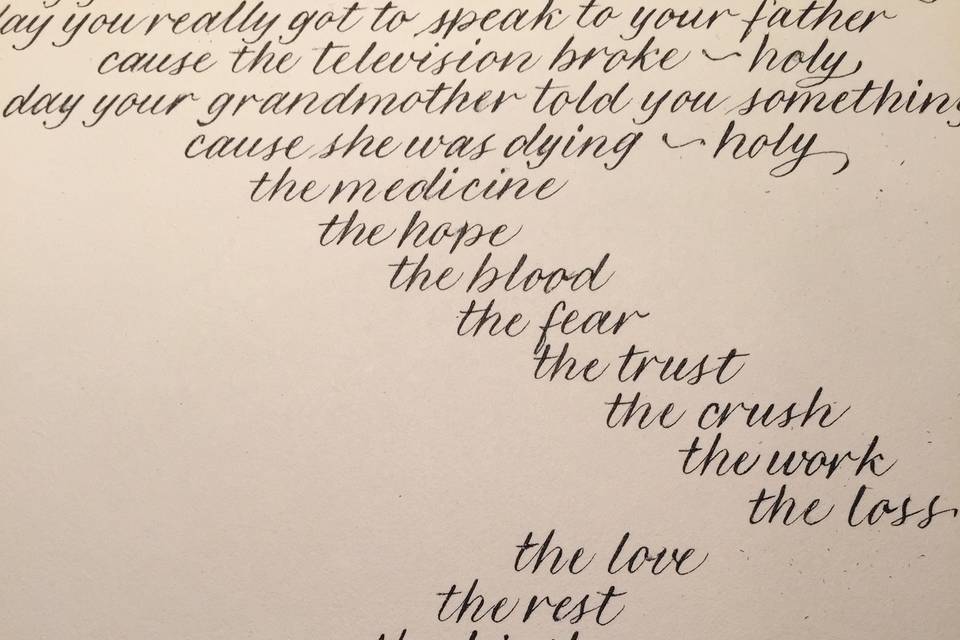 day you really got to speak to your father
cause the television broke ~ holy,
day your grandmother told you something
cause she was dying ~ holy
the medicine
the hope
the blood
the fear
the trust
the crush
the work
the loss
the love
the rest